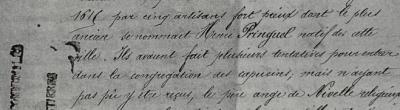 1616 par cinq artisans fort pieux dont le plus
ancien se nommait Henri Pringuel natif des cette
ville. Ils avaient fait plusieurs tentatives pour entrer
dans la congregation des capucins, mais n'ayant
pas pu y être reçus, le père ange de Nivelle religieux